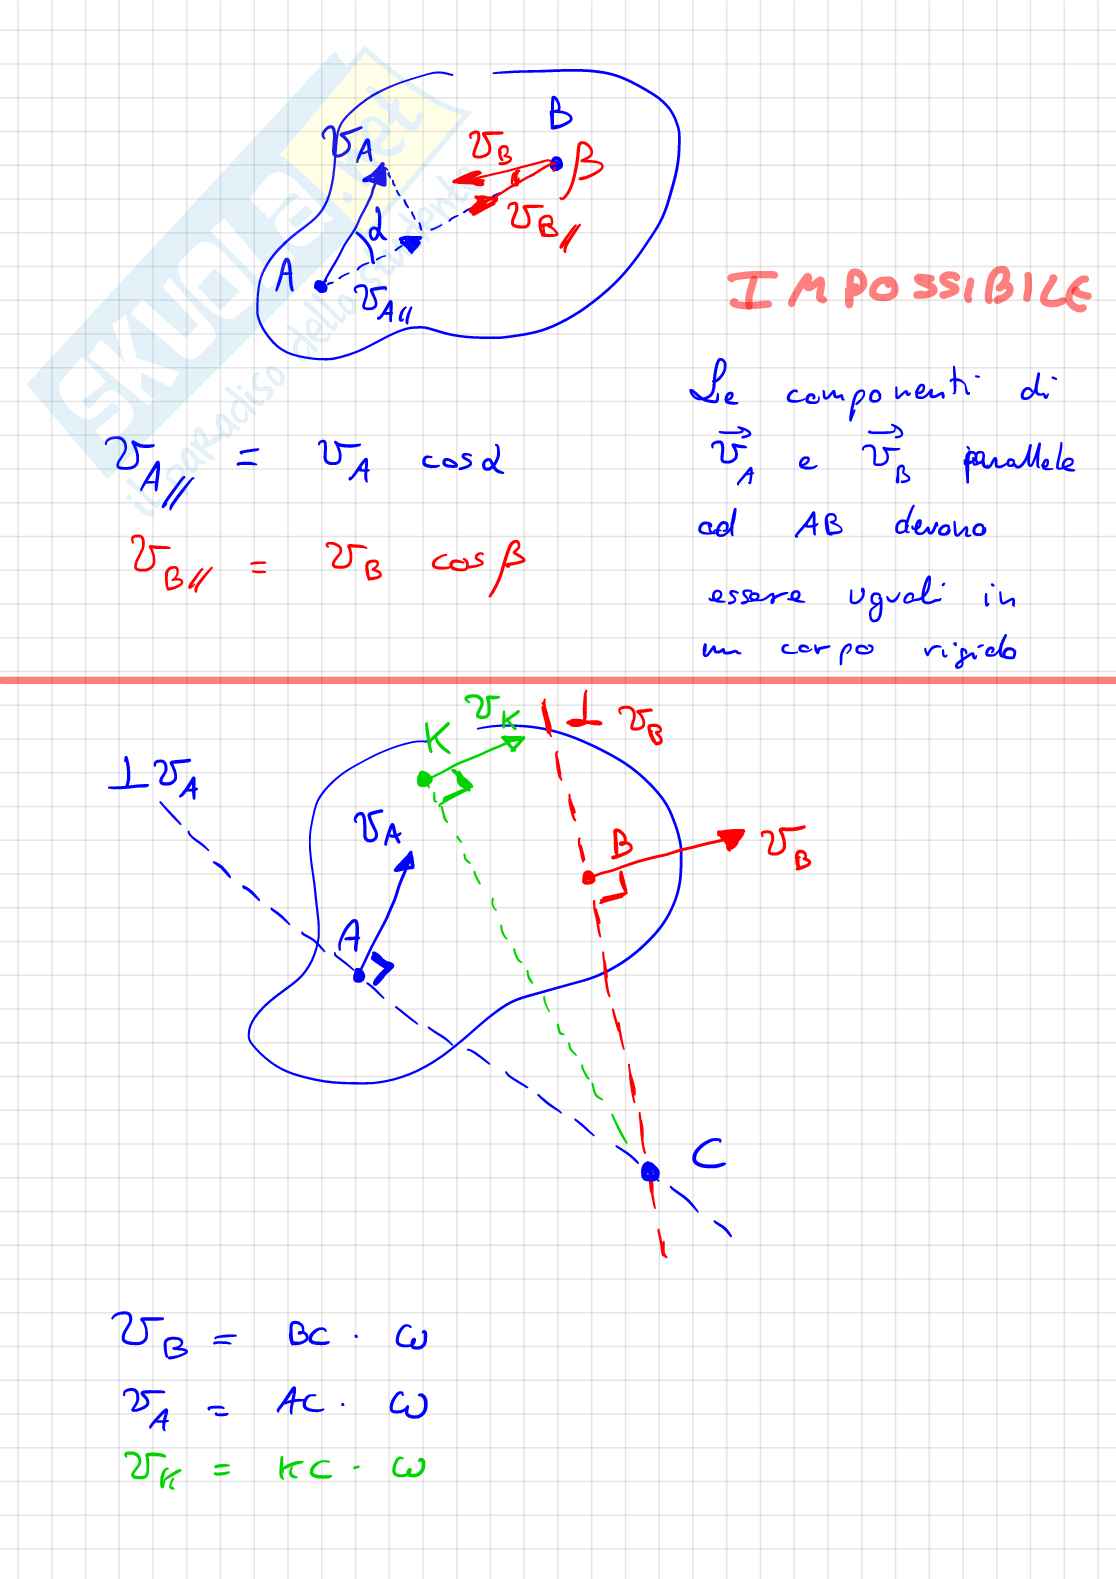 B
v_A
v_B
β
α
v_B//
A
v_A//
IMPOSSIBILE
Le componenti di
v_A e v_B parallele
ad AB devono
essere uguali in
un corpo rigido
v_A// = v_A cosα
v_B// = v_B cosβ
v_K
⊥ v_B
K
⊥ v_A
v_A
B
v_B
A
C
v_B = BC · ω
v_A = AC · ω
v_K = KC · ω
SKUOLA.net
il paradiso dello studente